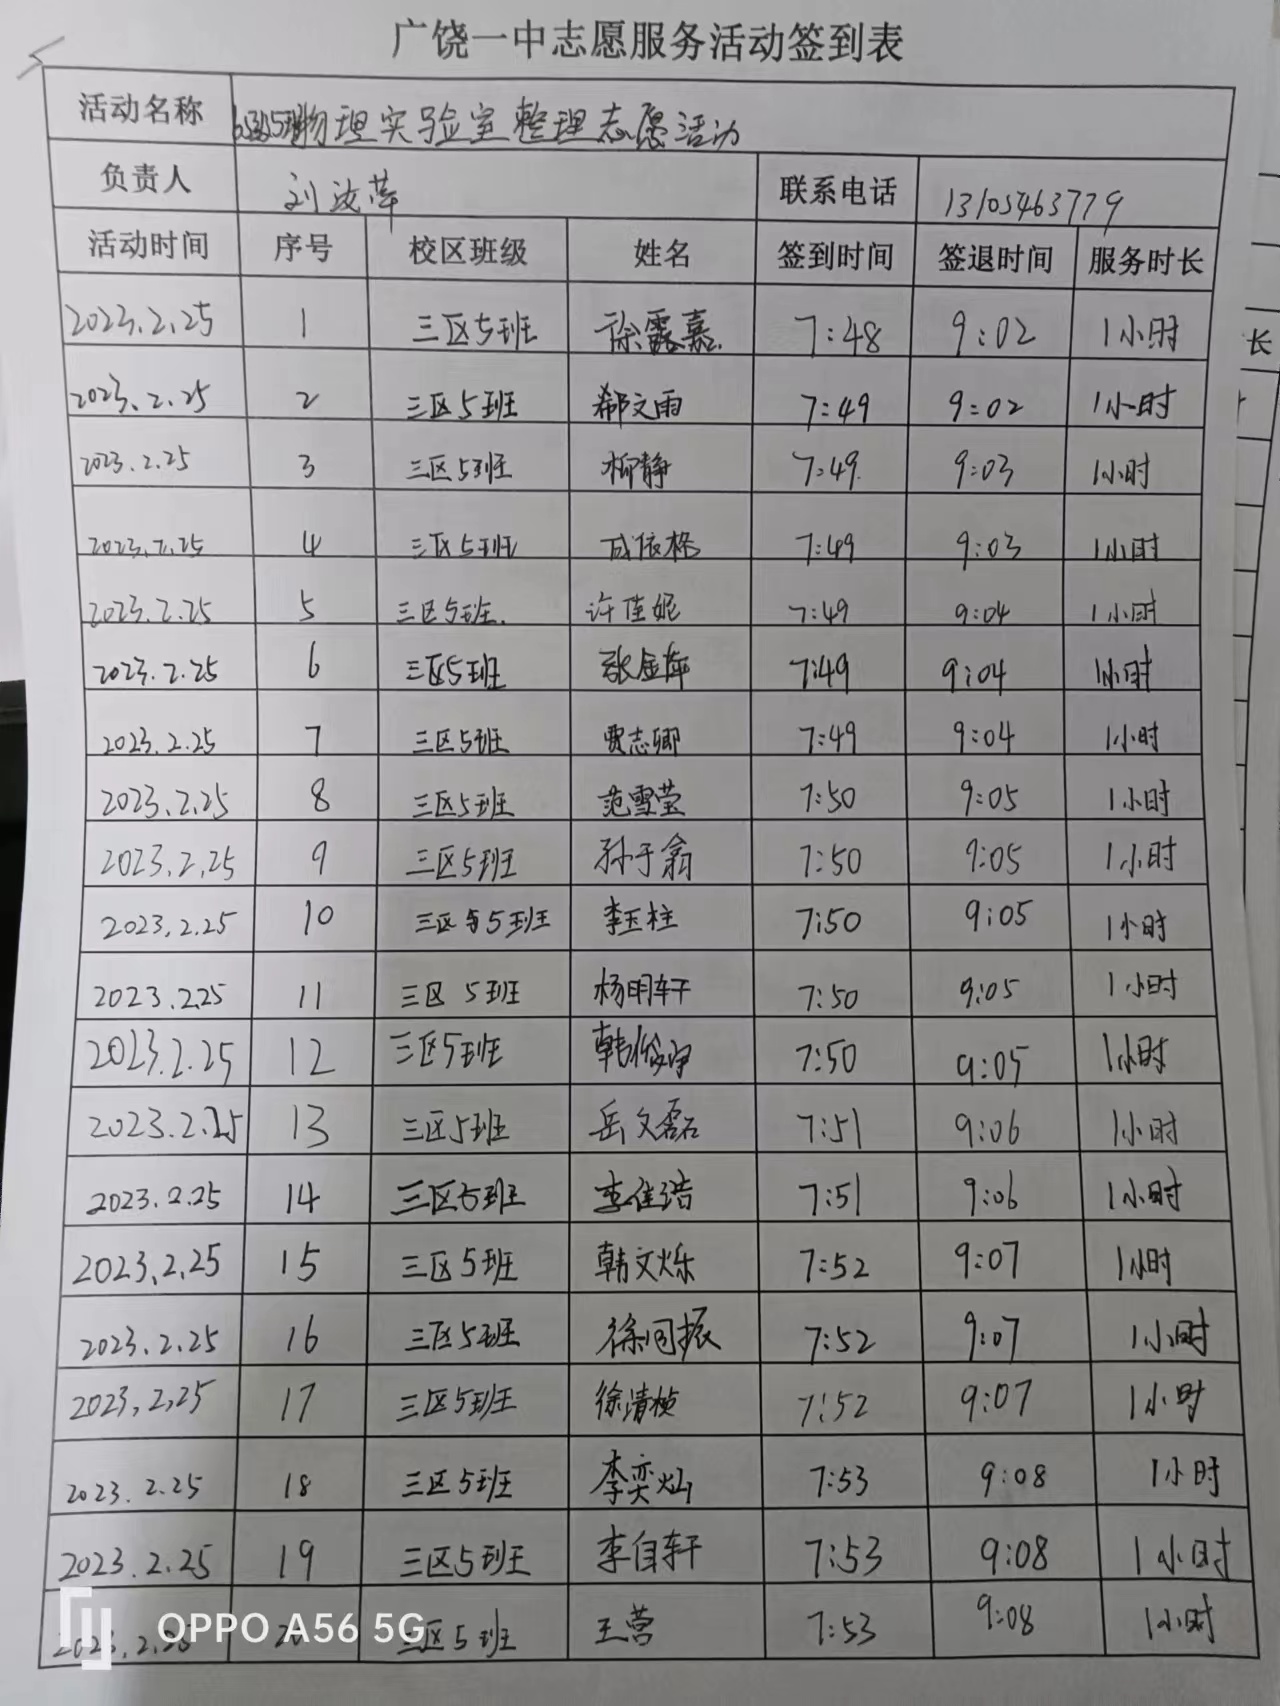 广饶一中志愿服务活动签到表
活动名称 物理实验室整理志愿活动
负责人 刘汝萍 联系电话 13105463779
活动时间 序号 校区班级 姓名 签到时间 签退时间 服务时长
2023.2.25 1 三区5班 徐露嘉 7:48 9:02 1小时
2023.2.25 2 三区5班 郗文雨 7:49 9:02 1小时
2023.2.25 3 三区5班 柳静 7:49 9:03 1小时
2023.2.25 4 三区5班 成依格 7:49 9:03 1小时
2023.2.25 5 三区5班 许佳妮 7:49 9:04 1小时
2023.2.25 6 三区5班 张金萍 7:49 9:04 1小时
2023.2.25 7 三区5班 贾志卿 7:49 9:04 1小时
2023.2.25 8 三区5班 范雪莹 7:50 9:05 1小时
2023.2.25 9 三区5班 孙于翕 7:50 9:05 1小时
2023.2.25 10 三区5班 李玉柱 7:50 9:05 1小时
2023.2.25 11 三区5班 杨明轩 7:50 9:05 1小时
2023.2.25 12 三区5班 7:50 9:05 1小时
2023.2.25 13 三区5班 岳文磊 7:51 9:06 1小时
2023.2.25 14 三区5班 李佳浩 7:51 9:06 1小时
2023.2.25 15 三区5班 韩文烁 7:52 9:07 1小时
2023.2.25 16 三区5班 徐同振 7:52 9:07 1小时
2023.2.25 17 三区5班 徐清桢 7:52 9:07 1小时
2023.2.25 18 三区5班 李奕灿 7:53 9:08 1小时
2023.2.25 19 三区5班 李自轩 7:53 9:08 1小时
2023.2.25 20 三区5班 王营 7:53 9:08 1小时
OPPO A56 5G
长